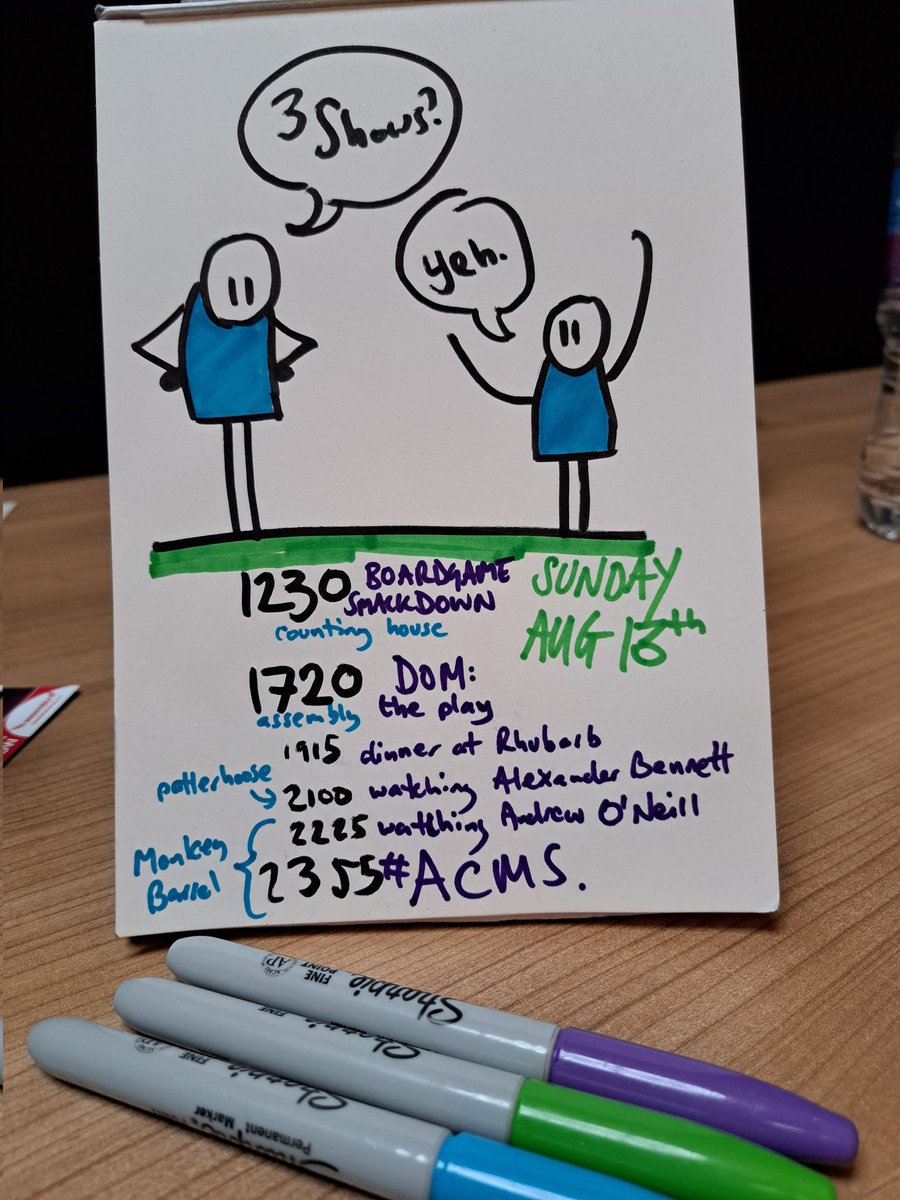 3 Shows?
yeh.
1230 BOARDGAME
SMACKDOWN
counting house
SUNDAY
AUG 13th
1720 DOM:
assembly the play
1915 dinner at Rhubarb
potterhoose
2100 watching Alexander Bennett
2225 watching Andrew O'Neill
Monkey
Barrel
2355 #ACMS.
Sharpie
FINE
POINT
AP
Sharpie
FINE
Sharpie
Permanent Marker
FINE
AP